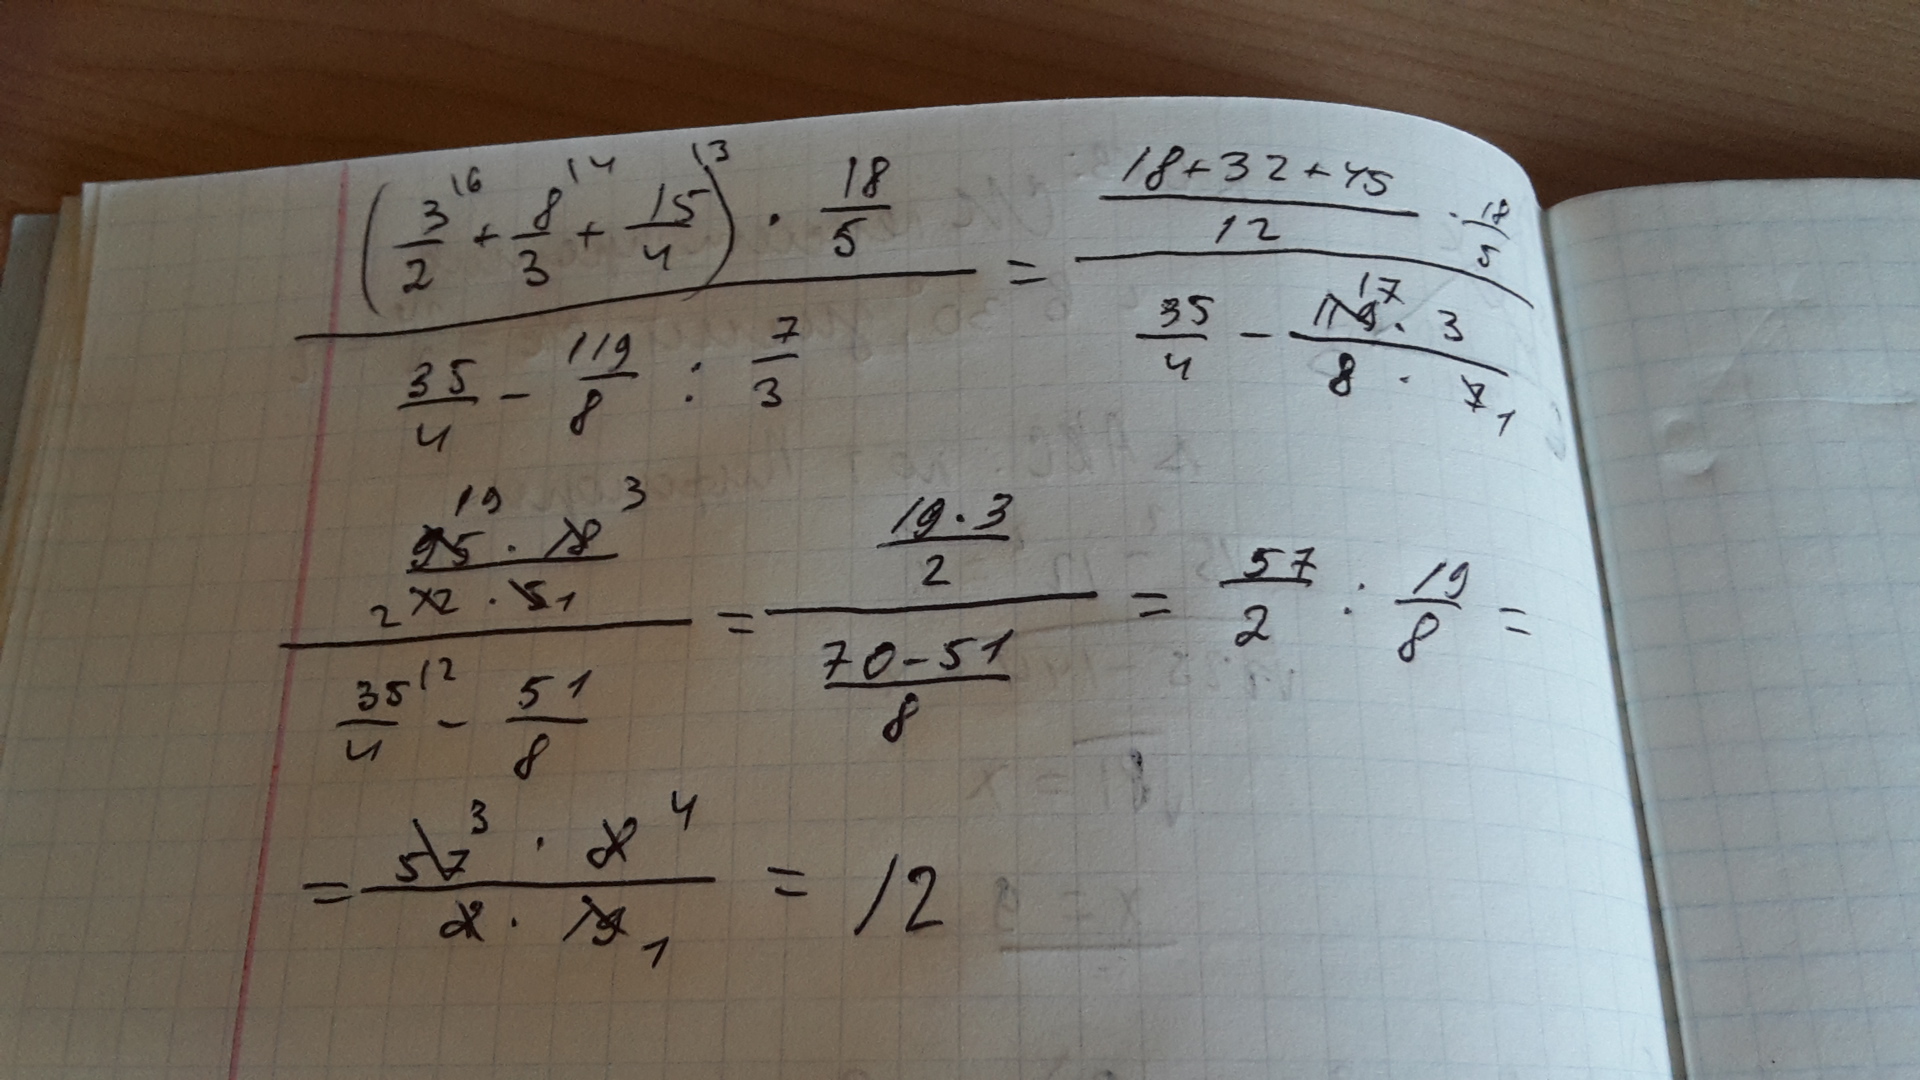 (3/2 16 + 8/3 14 + 15/4 13) · 18/5 / 35/4 - 119/8 : 7/3 = 18+32+45/12 · 18/5 / 35/4 - 119 17 · 3/8 · 7 1
95 19 · 18 3/2 12 · 5 1 / 35 12/4 - 51/8 = 19·3/2 / 70-51/8 = 57/2 : 19/8 =
= 57 3 · 8 4/2 · 19 1 = 12